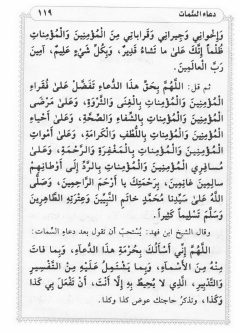 دعاء السمات ١١٩
وَإِخْوَانِي وَجِيرَانِي وَقَرَابَاتِي مِنَ الْمُؤْمِنِينَ وَالْمُؤْمِنَاتِ
ظُلْماً إِنَّكَ عَلَىٰ مَا تَشَاءُ قَدِيرٌ، وَبِكُلِّ شَيْءٍ عَلِيمٌ، آمِينَ
رَبَّ الْعَالَمِينَ.
ثم قل: اللَّهُمَّ بِحَقِّ هَذَا الدُّعَاءِ تَفَضَّلْ عَلَىٰ فُقَرَاءِ
الْمُؤْمِنِينَ وَالْمُؤْمِنَاتِ بِالْغِنَىٰ وَالثَّرْوَةِ، وَعَلَىٰ مَرْضَى
الْمُؤْمِنِينَ وَالْمُؤْمِنَاتِ بِالشِّفَاءِ وَالصِّحَّةِ، وَعَلَىٰ أَحْيَاءِ
الْمُؤْمِنِينَ وَالْمُؤْمِنَاتِ بِاللُّطْفِ وَالْكَرَامَةِ، وَعَلَىٰ أَمْوَاتِ
الْمُؤْمِنِينَ وَالْمُؤْمِنَاتِ بِالْمَغْفِرَةِ وَالرَّحْمَةِ، وَعَلَىٰ
مُسَافِرِي الْمُؤْمِنِينَ وَالْمُؤْمِنَاتِ بِالرَّدِّ إِلَىٰ أَوْطَانِهِمْ
سَالِمِينَ غَانِمِينَ، بِرَحْمَتِكَ يَا أَرْحَمَ الرَّاحِمِينَ، وَصَلَّى
اللَّهُ عَلَىٰ سَيِّدِنَا مُحَمَّدٍ خَاتَمِ النَّبِيِّينَ وَعِتْرَتِهِ الطَّاهِرِينَ
وَسَلَّمَ تَسْلِيماً كَثِيراً.
وقال الشيخ ابن فهد: يُستحبّ أن تقول بعد دعاء السّمات:
اللَّهُمَّ إِنِّي أَسْأَلُكَ بِحُرْمَةِ هَذَا الدُّعَاءِ، وَبِمَا فَاتَ
مِنْهُ مِنَ الْأَسْمَاءِ، وَبِمَا يَشْتَمِلُ عَلَيْهِ مِنَ التَّفْسِيرِ
وَالتَّدْبِيرِ، الَّذِي لَا يُحِيطُ بِهِ إِلَّا أَنْتَ، أَنْ تَفْعَلَ بِي كَذَا
وَكَذَا، وتذكر حاجتك عوض كذا وكذا.